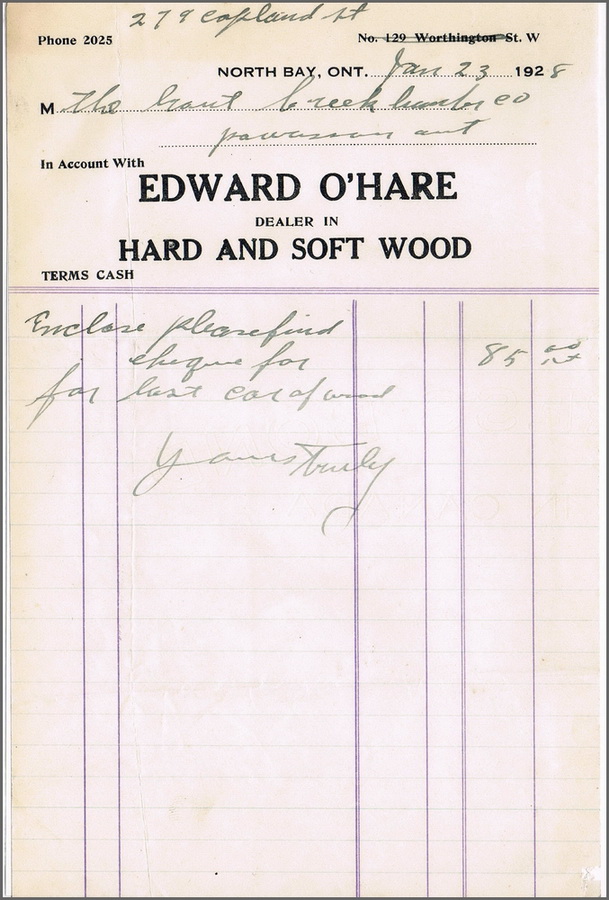 279 Copland St
Phone 2025 No. 129 Worthington St. W
NORTH BAY, ONT. Jan 23 1928
M The Creek lumber co
powassan ont
In Account With
EDWARD O'HARE
DEALER IN
HARD AND SOFT WOOD
TERMS CASH
Enclose please find
cheque for 85 00
for last car of wood
yours truly